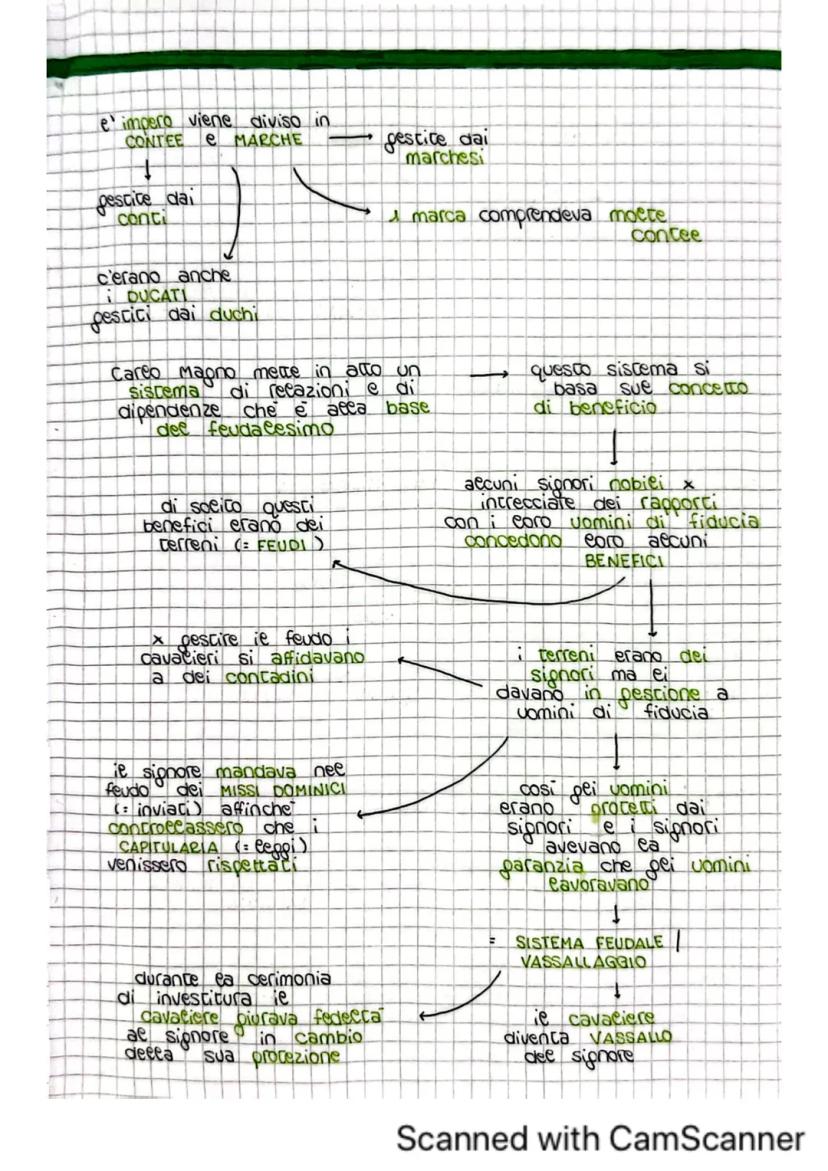 l'impero viene diviso in
CONTEE e MARCHE → gestite dai
marchesi
gestite dai
conti
1 marca comprendeva molte
contee
c'erano anche
i DUCATI
gestiti dai duchi
Carlo Magno mette in atto un
sistema di relazioni e di
dipendenze che è alla base
del feudalesimo
→ questo sistema si
basa sul concetto
di beneficio
alcuni signori nobili x
intrecciate dei rapporti
con i loro uomini di fiducia
concedono loro alcuni
BENEFICI
di solito questi
benefici erano dei
terreni (= FEUDI)
i terreni erano dei
signori ma li
davano in gestione a
uomini di fiducia
x gestire il feudo i
cavalieri si affidavano
a dei contadini
il signore mandava nel
feudo dei MISSI DOMINICI
(= inviati) affinché
controllassero che i
CAPITULARIA (= leggi)
venissero rispettati
così gli uomini
erano protetti dai
signori e i signori
avevano la
garanzia che gli uomini
lavoravano
= SISTEMA FEUDALE |
VASSALLAGGIO
durante la cerimonia
di investitura il
cavaliere giurava fedeltà
al signore in cambio
della sua protezione
il cavaliere
diventa VASSALLO
del signore
Scanned with CamScanner